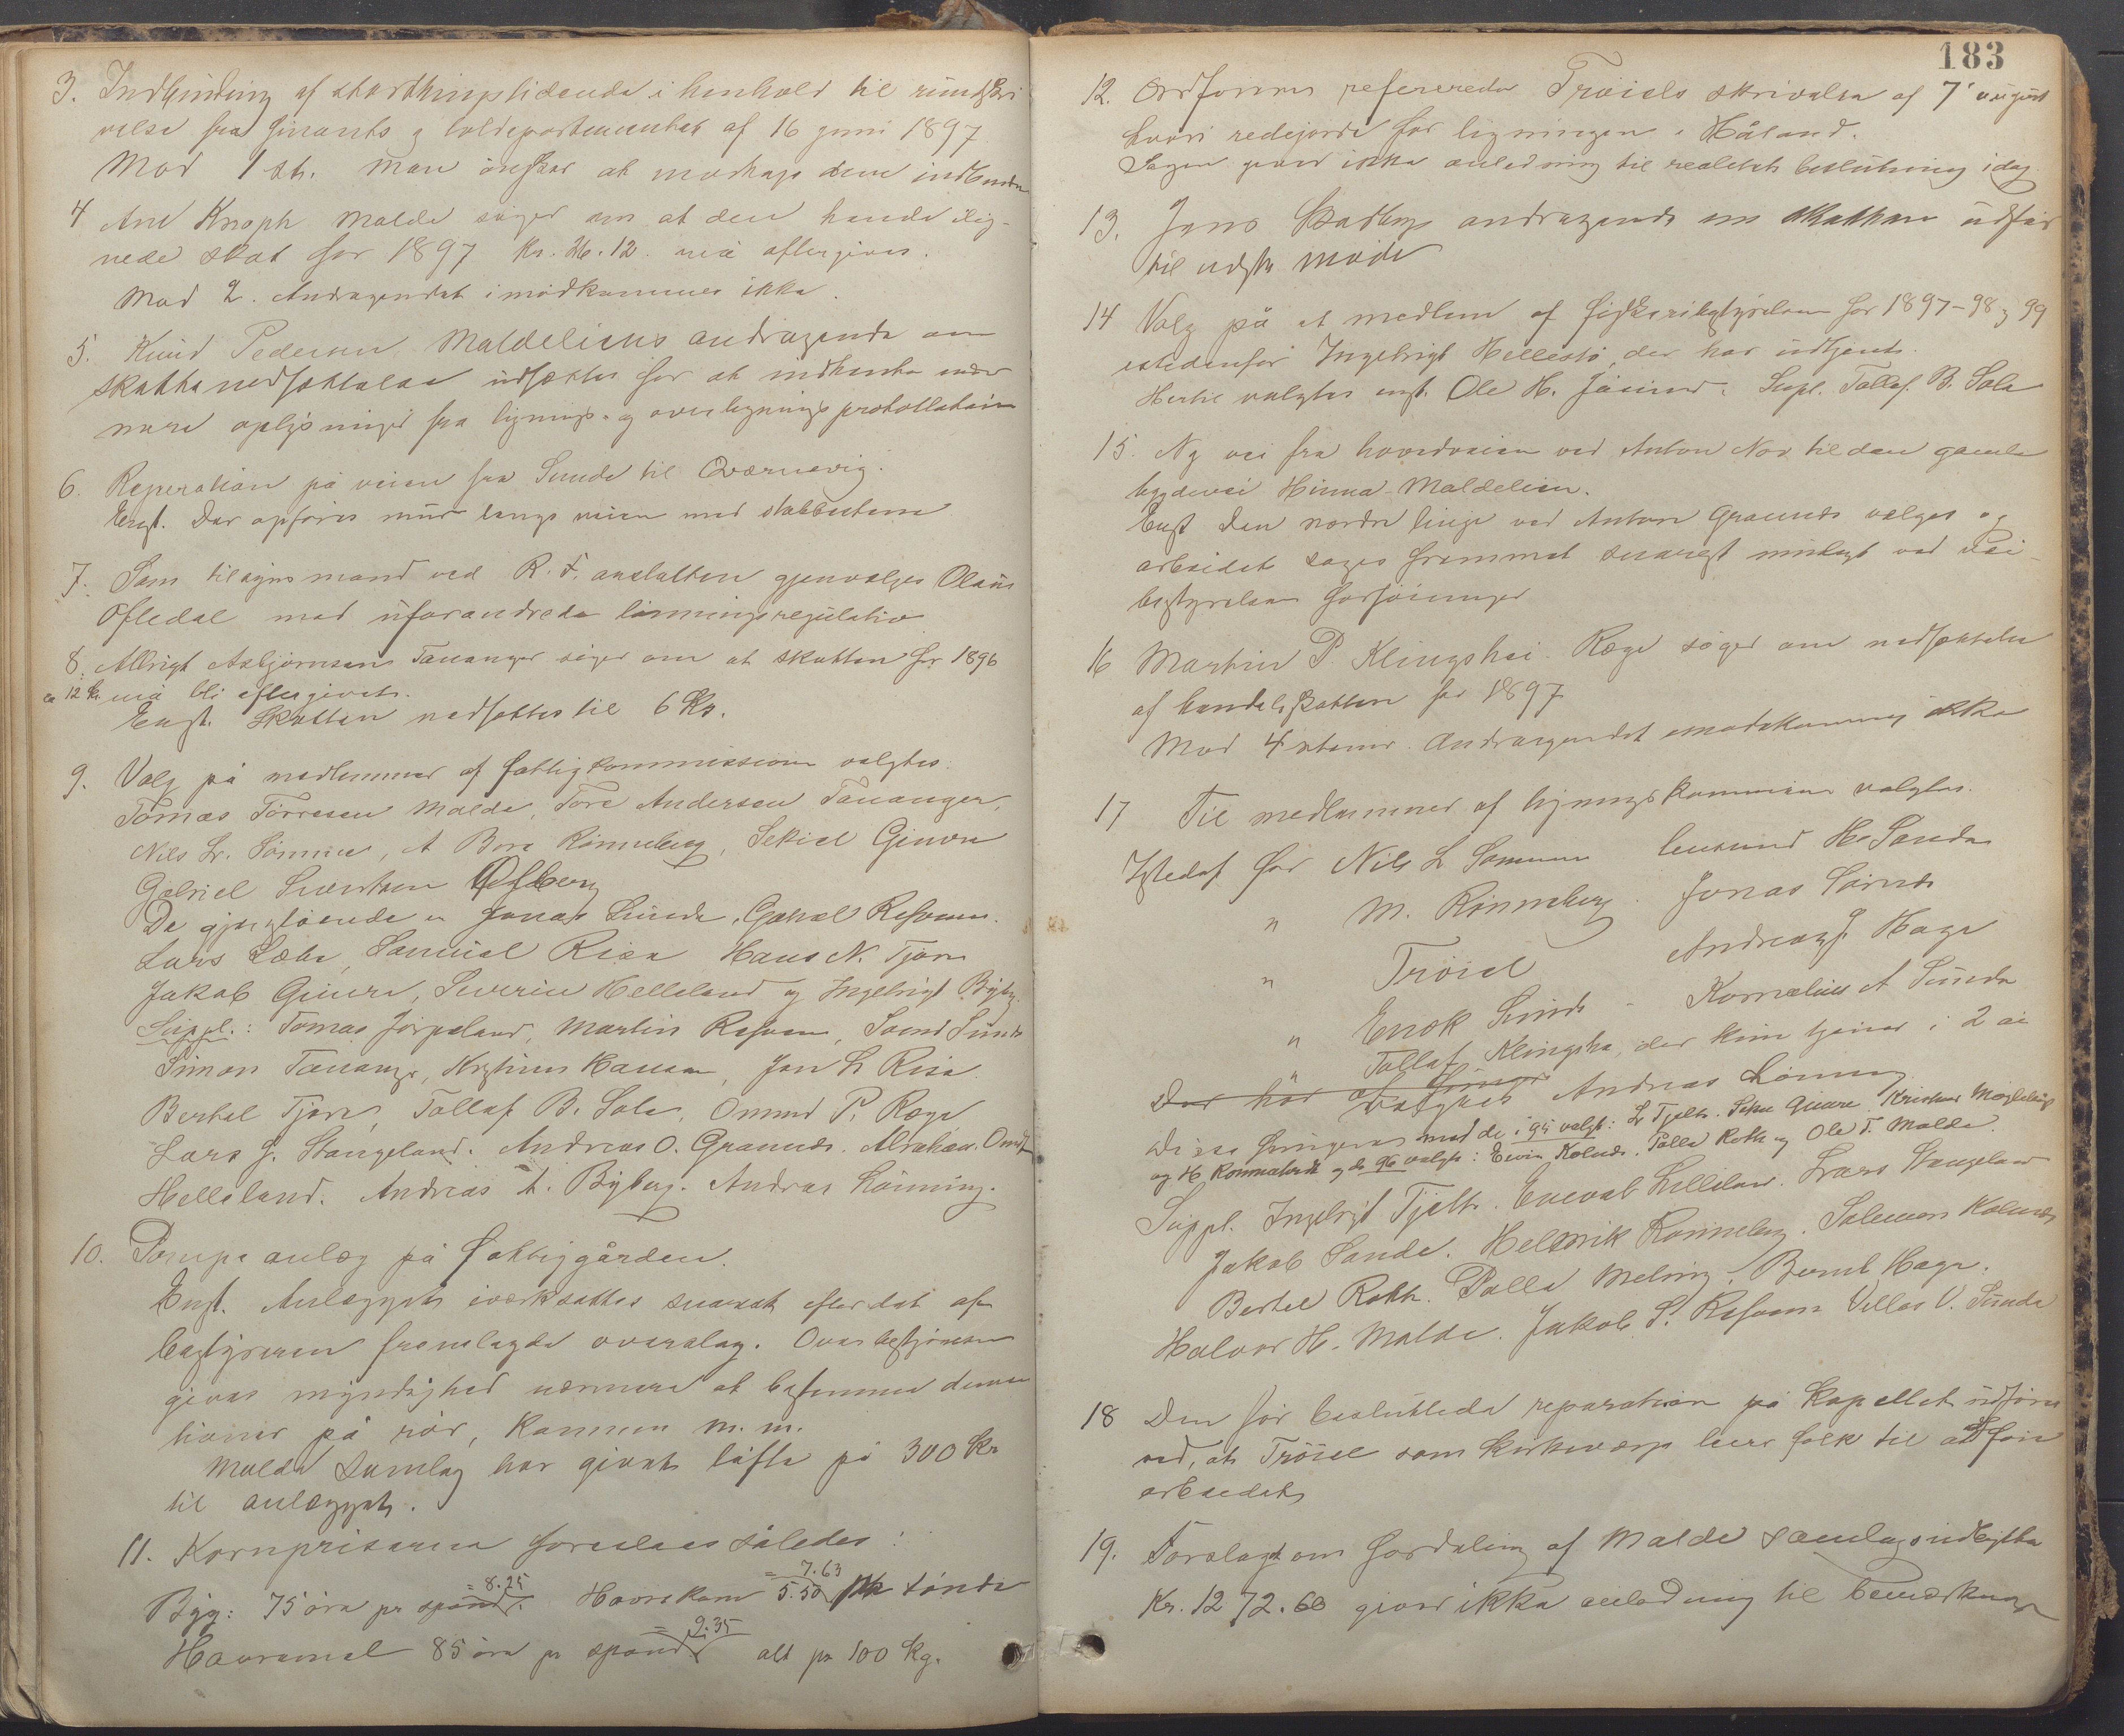 3. Indbinding af storthingstidende i henhold til rundskri
velse fra finants og tolddepartementet af 16 juni 1897
Mod 1 st. Man ønsker at modtage dem indbundne
4 Ane Knoph Malde søger om at den hende ilig-
nede skat for 1897 Kr. 26.12. må eftergives.
Mod 2. Andragendet imødkommes ikke.
5. Knud Pedersen Maldeliens andragende om
skattenedsættelse udsættes for at indhente nær
mere oplysninger fra lignings- og overligningsprotokollen
6. Reperation på veien fra Sunde til Qværnevig.
Enst. Der opføres mur langs veien med stabbestene
7. Som tilsynsmand ved R. F. anstalten gjenvalges Olaus
Ofledal med uforandrede lønningsregulativ
8. Albrigt Asbjørnsens Tananger søger om at skatten for 1896
12 kr. må bli eftergivet.
Enst. Skatten nedsættes til 6 Kr.
9. Valg på medlemmer af fattigkommissionen valgtes:
Tomas Torresen Malde, Tore Andersen Tananger,
Nils Lr. Sømme, A Bore Rønneberg, Sekiel Gimre
Gabriel Svendsen Ofberg
De gjenstående er Jonas Sunde, Gabriel Refsnes.
Lars Læbe, Samuel Risa Hans N. Tjora
Jakob Gimre, Severin Helleland og Ingebrigt Byberg.
Suppl.: Tomas Jørpeland, Martin Refsnes, Svend Sunde
Simon Tananger, Kristian Hansen, Jon L Risa.
Bertel Tjora, Tollaf B. Sola, Ommund P. Ræge
Lars J. Stangeland. Andreas O. Grannes. Abraham Omdt
Helleland. Andreas A. Byberg. Andreas Lønning.
10. Pompe anlæg på fattiggården.
Enst. Anlægget iværksættes snarest efter det af
bestyreren fremlagde overslag. Overbestyrelsen
gives myndighed nærmere at bestemme dimen
tioner på rør, kummen m. m.
Malde Samlag har givet løfte på 300 Kr
til anlægget.
11. Kornpriserne foreslaaes således:
= 8.25 = 7.63
Byg: 75 øre pr spand. Havrekorn 5.50 pr tønde
= 9.35
Havremel 85 øre pr spand alt pr 100 Kg.
183
12. Ordføreren refererede Trøiels skrivelse af 7' august
hvori redegjordes for ligningen i Håland.
Sagen giver ikke anledning til realitets beslutning idag
13. Jens Stadbergs andragende om skatten udsættes
til næste møde
14 Valg på et medlem af fiskeribestyrelsen for 1897-98 og 99
istedenfor Ingebrigt Hellestø, der har udtjent.
Hertil valgtes enst. Ole H. Jåsund. Supl. Tollef B. Sola
15. Ny vei fra hovedveien ved Anton Nov til den gamle
bygdevei Hinna-Maldelien.
Enst Den nordre linje ved Anton Grannes valges og
arbeidet søges fremmet snarest muligt ved vei-
bestyrelsens forføininger
16 Martin P. Klingshei. Ræge søger om nedsættelse
af handelsskatten for 1897
Mod 4 stemmer. Andragendet imødekommes ikke
17 Til medlemmer af ligningskommisionen valgtes.
Istedet for Nils L Sømme lensmand H. Sande
" M. Rønneberg. Jonas Sørnes
" Trøiel Andreas J. Haga
" Enok Sunde - Kornelius A Sunde
" Tollaf Klingshe, der kun tjener i 2 år
valgtes Andreas Lønning
Disse fungerer med de i 95 valgt: L Tjelta. Sekiel Gimre. Kristian Meglehus
og H. Rommetvedt og de 96 valgte: Eivin Kolnes. Palle Roth og Ole T. Malde.
Suppl. Ingebrigt Tjelta. Enevald Lilleland. Lars Stangeland
Jakob Sande. Helmik Rønneberg. Salemon Kolnes
Bertel Roth. Palle Meling. Bernt Haga.
Halvor H. Malde. Jakob S. Refsnes Villas V. Sunde
18 Den før besluttede reparation på Kapellet udføres
ved, at Trøiel som kirkeværge leier folk til at udføre
arbeidet
19. Forslaget om fordeling af Malde samlagsudbytte
Kr. 1272.68 giver ikke anledning til bemærkninger